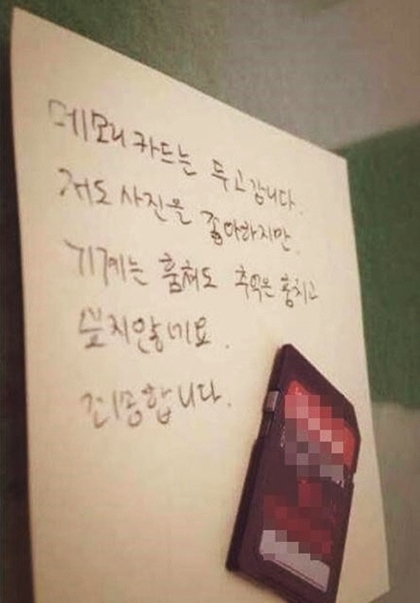 메모리 카드는 두고갑니다.
저도 사진을 좋아하지만.
기계는 훔쳐도 추억은 훔치고
싶지않네요.
죄송합니다.